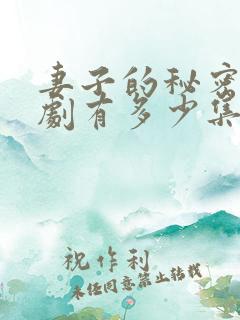 妻子的秘密
劇有多少集
祝作利
未经同意禁止转载